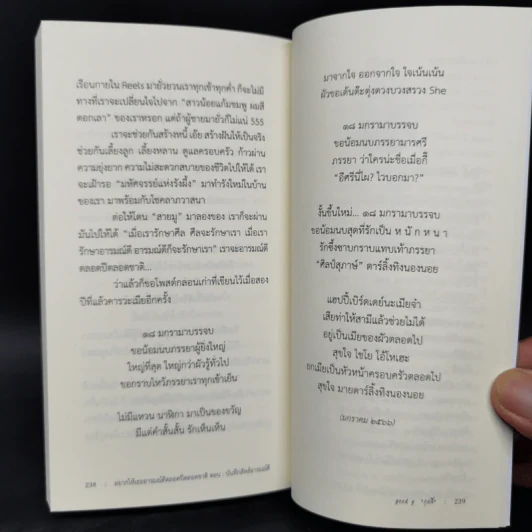 เรือนกายใน Reels มายั่วยวนเราทุกเช้าทุกค่ำ ก็จะไม่มี
ทางที่เราจะเปลี่ยนใจไปจาก "สาวน้อยแก้มชมพู ผมสี
ดอกเลา" ของเราหรอก แต่ถ้าผู้ชายมายั่วก็ไม่แน่ 555
เราจะช่วยกันสร้างหนี้ เอ้ย สร้างฝันให้เป็นจริง
ช่วยกันเลี้ยงลูก เลี้ยงหลาน ดูแลครอบครัว ก้าวผ่าน
ความยุ่งยาก ความไม่สะดวกสบายของชีวิตไปให้ได้ เรา
จะเฝ้ารอ "มหัศจรรย์แห่งรังผึ้ง" มาทำรังใหม่ในบ้าน
ของเรา มาพร้อมกับโชคลาภวาสนา
ต่อให้โดน "สายมู" มาลองของ เราก็จะผ่าน
มันไปให้ได้ "เมื่อเรารักษาศีล ศีลจะรักษาเรา เมื่อเรา
รักษาอารมณ์ดี อารมณ์ดีก็จะรักษาเรา" เราจะอารมณ์ดี
ตลอดปีตลอดชาติ...
ว่าแล้วก็ขอโพสต์กลอนเก่าที่เขียนไว้เมื่อสอง
ปีที่แล้วคารวะเมียอีกครั้ง
๑๘ มกรามาบรรจบ
ขอน้อมนบภรรยาผู้ยิ่งใหญ่
ใหญ่ที่สุด ใหญ่กว่าผัวรู้ทั่วไป
ขอกราบไหว้ภรรยาเราทุกเช้าเย็น
ไม่มีแหวน นาฬิกา มาเป็นของขวัญ
มีแต่คำสั้นสั้น รักเห็นเห็น
238 : อยากให้เธออารมณ์ดีตลอดปีตลอดชาติ ตอน : บันทึกลิงค์อารมณ์ดี
มาจากใจ ออกจากใจ ใจเน้นเน้น
ผัวขอเต้นต๊ะตุ่งตวงบวงสรวง She
๑๘ มกรามาบรรจบ
ขอน้อมนบภรรยามารศรี
ภรรยา ว่าใครน่ะชื่อเมื่อกี๊
"อีศรีนี่ไผ? ไวบอกมา?"
งั้นขึ้นใหม่... ๑๘ มกรามาบรรจบ
ขอน้อมนบสุดที่รักเป็น ห นั ก ห น า
รักซึ้งซาบกราบแทบเท้าภรรยา
"ศิลป์สุภาษ์" ดาร์ลิ้งทิงนองนอย
แฮปปี้เบิร์ดเดย์นะเมียจ๋า
เสียท่าให้สามีแล้วช่วยไม่ได้
อยู่เป็นเมียของผัวตลอดไป
สุขใจ ไชโย โอ้โหเฮะ
ยกเมียเป็นหัวหน้าครอบครัวตลอดไป
สุขใจ มายดาร์ลิ้งทิงนองนอย
(มกราคม ๒๕๖๖)
239